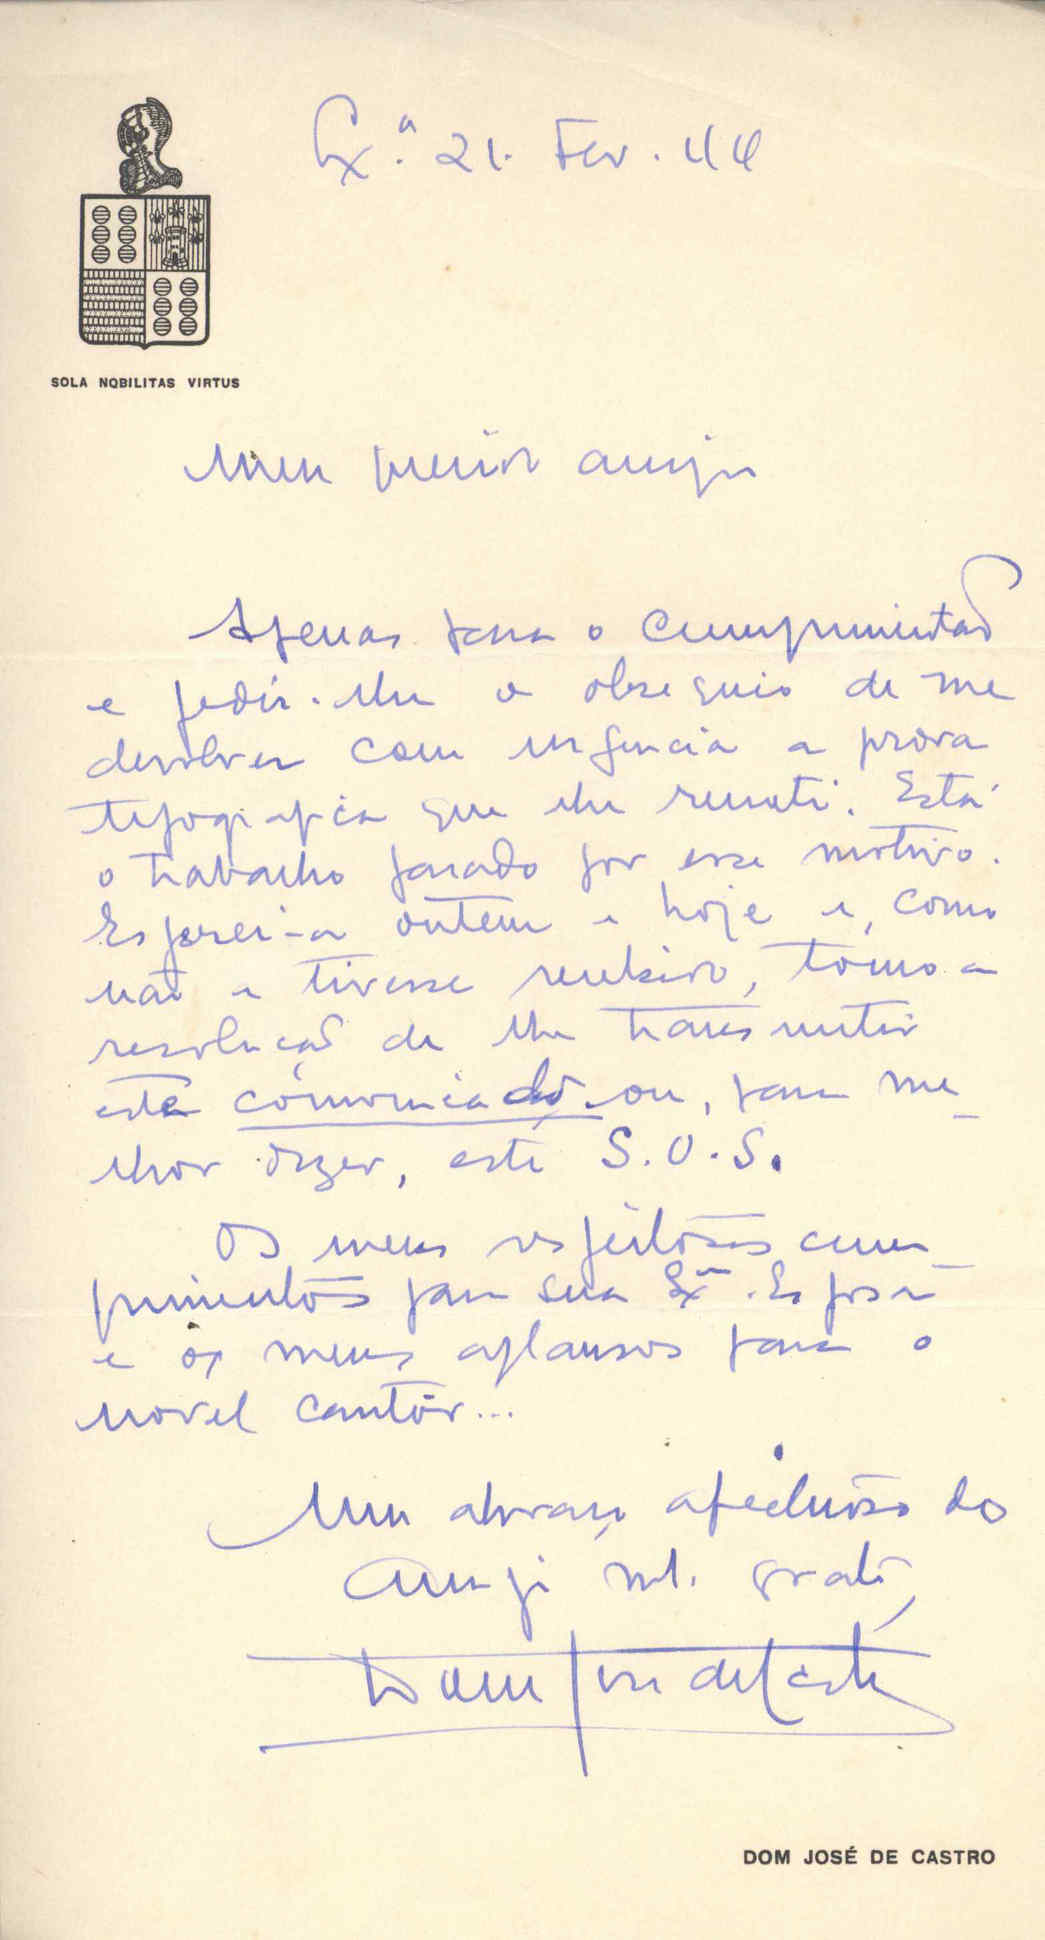 Lx.ª 21. Fev. 44
SOLA NOBILITAS VIRTUS
Meu amigo
Apenas para o cumprimentar
e pedir-lhe o obsequio de me
devolver com urgencia a prova
tipografica que lhe remeti. Está
o trabalho parado por esse motivo.
Esperei-a ontem e hoje e, como
não a tivesse recebido, tomo a
resolução de lhe transmitir
este comunicado ou, para me-
lhor dizer, este S.O.S.
Os meus respeitosos cum-
primentos para sua Exª. Esposa
e os meus aplausos para o
novel cantor...
Um abraço afectuoso do
amigo mt. grato
Dom José de Castro
DOM JOSÉ DE CASTRO